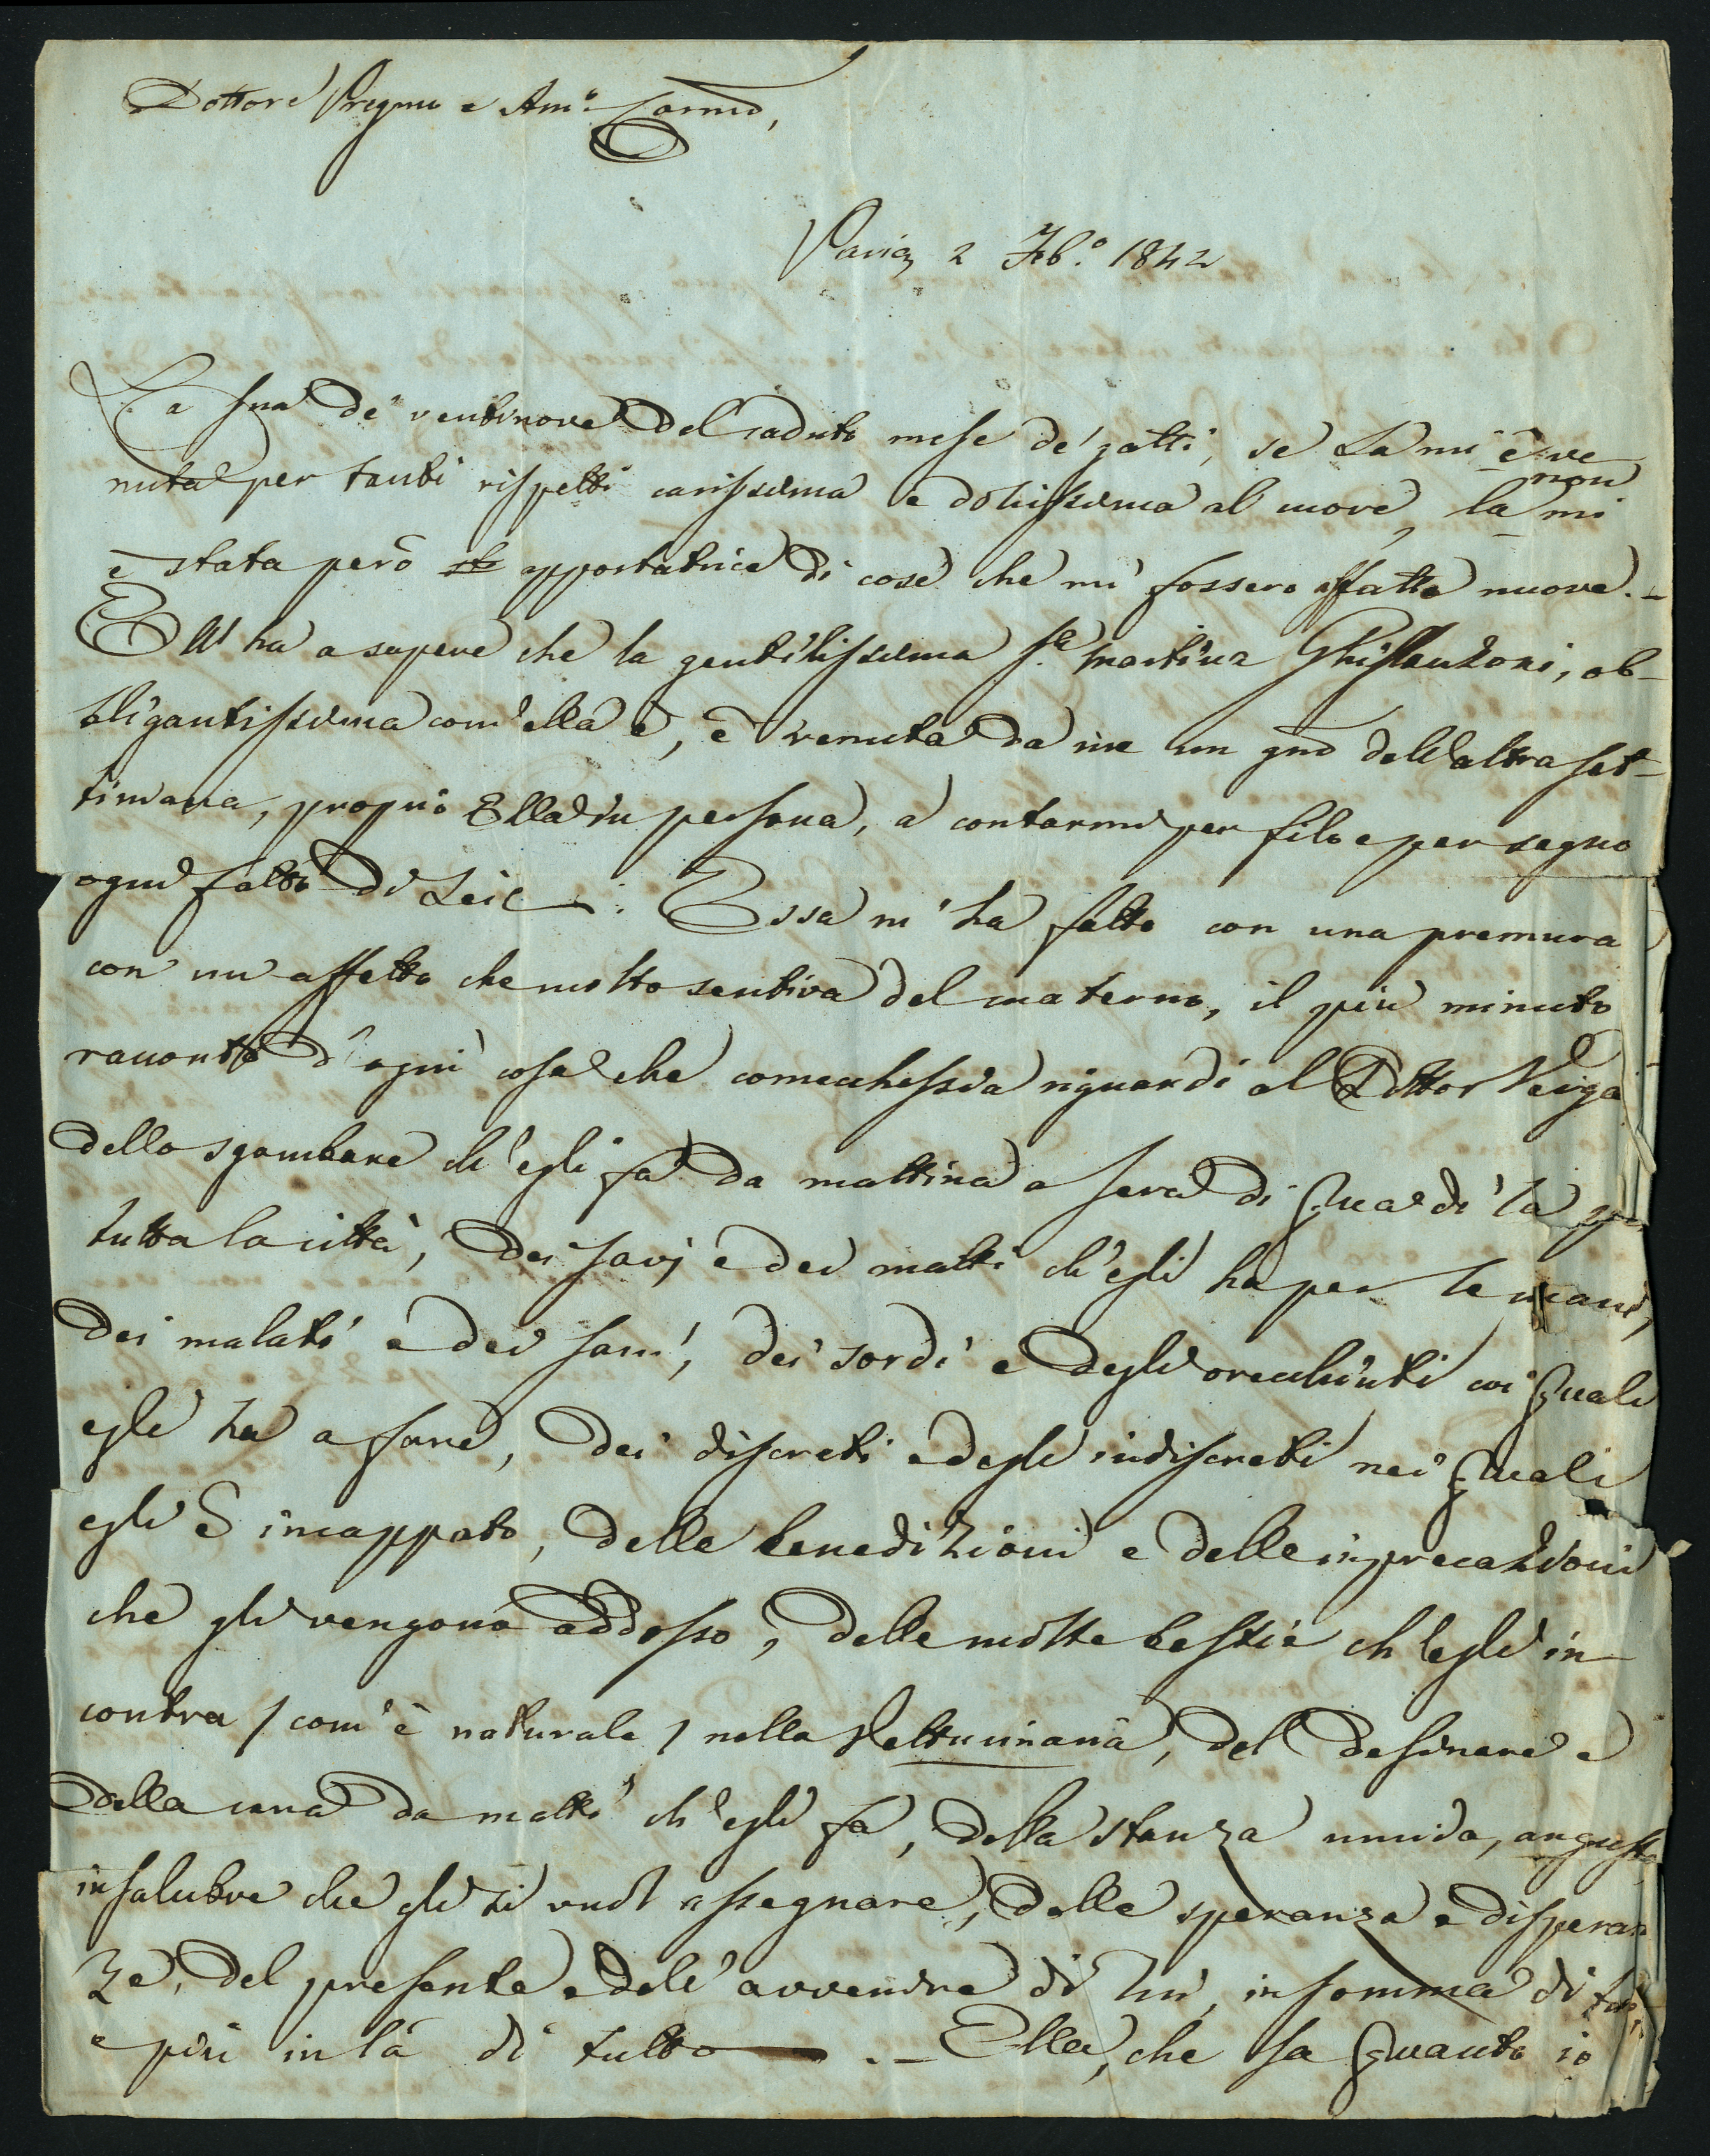 Dottore Pregmo e Amo Carmo,
Pavia, 2 Febo. 1842
La sua de' ventinove del caduto mese de' gatti, se La mi è ve
nuta per tanti rispetti carissima e dolcissima al cuore, la non mi
è stata però apportatrice di cose che mi fossero affatto nuove. –
Ell' ha a sapere che la gentilissima Sa. Martina Ghislanzoni, ob-
bligantissima com' ella è, è venuta da me un gno dell' altra set-
timana, proprio Ella in persona, a contarmi per filo e per segno
ogni fatto di Lei. Essa m' ha fatto con una premura
con un affetto che molto sentiva del materno, il più minuto
racconto d' ogni cosa che comecchessia riguardi al Dottor Verga
dello sgambare ch' egli fa da mattina a sera di qua di là per
tutta la città, dei savj e dei matti ch' egli ha per le mani,
dei malati e dei sani, dei sordi e degli orecchiuti coi quali
egli ha a fare, dei discreti e degli indiscreti nei quali
egli è incappato, delle benedizioni e delle imprecazioni
che gli vengono addosso, delle molte bestie ch' egli in-
contra / com' è naturale / nella Veltruniana, del desinare e
della cena da matti ch' egli fa, della stanza umida, angusta
insalubre che gli si vuol assegnare, delle speranze e disperan
ze, del presente e dell' avvenire di lui, in somma di
e più in là di tutto – . – Ella, che sa quanto io